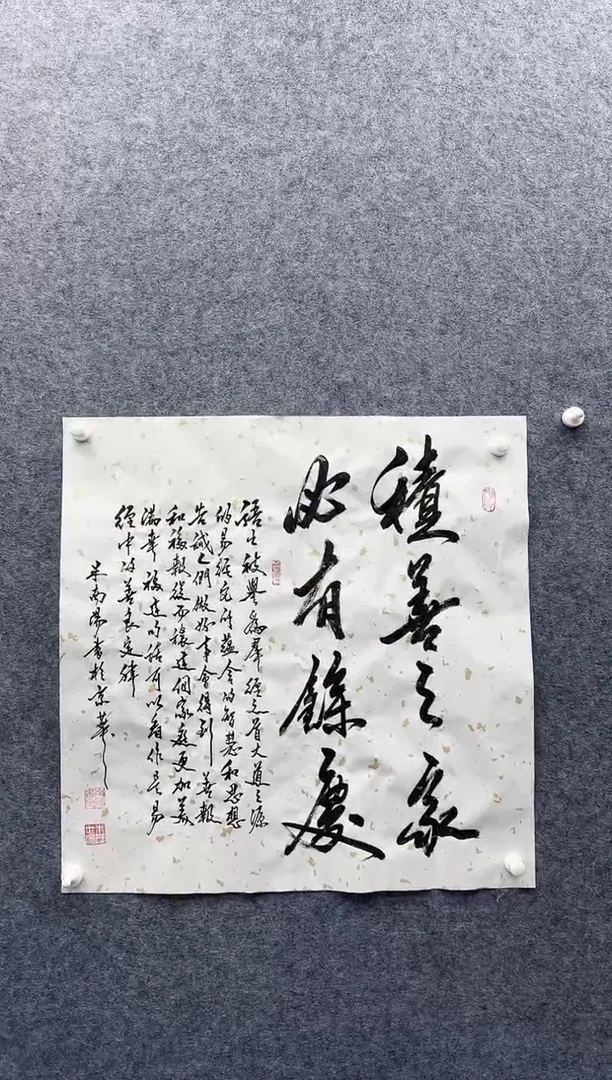 積善之家
必有餘慶
語出被譽為群經之首大道之源
的易經它所蘊含的智慧和思想
告誡人們做好事會得到善報
和福報從而讓這個家庭更加美
滿幸福這句話可以看作是易
經中的善良定律
米南陽書於京華